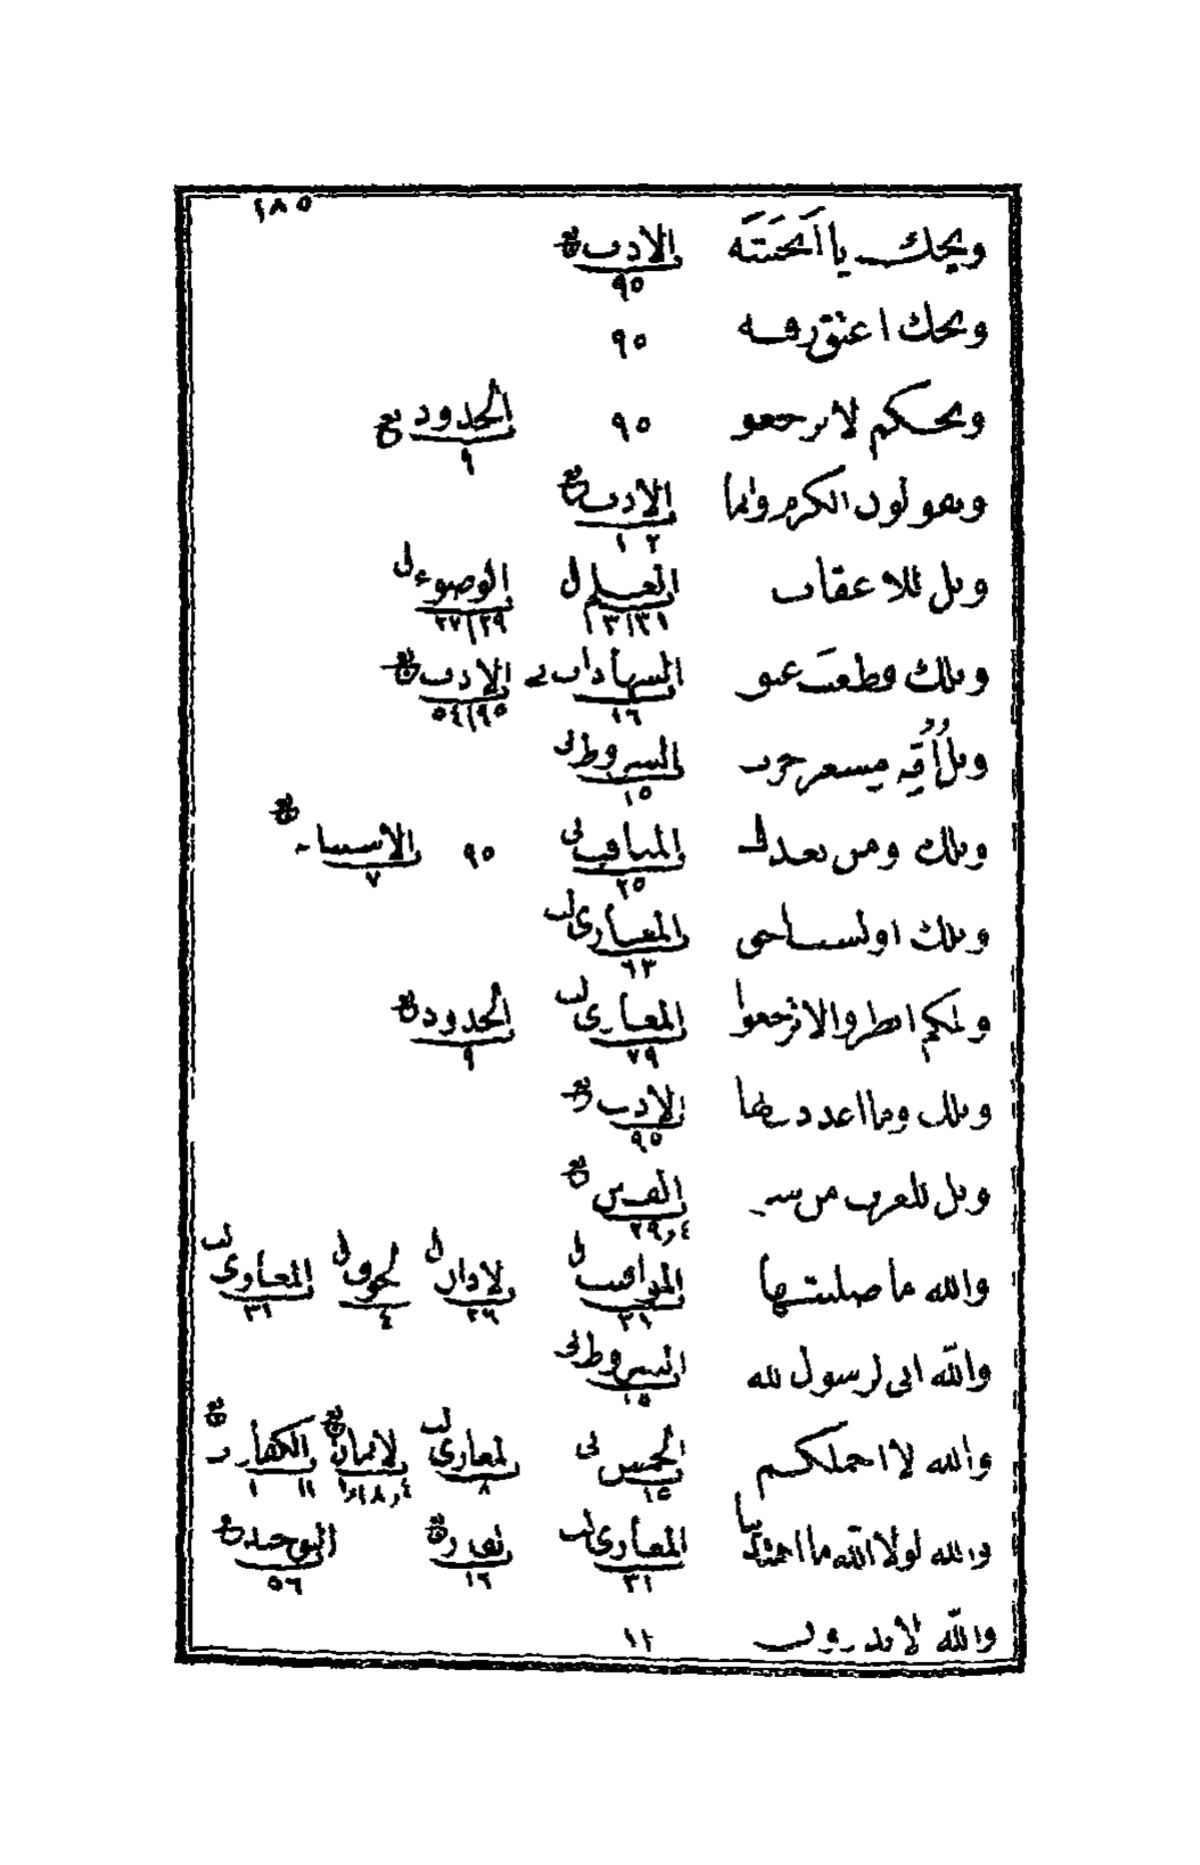 ١٨٥
ويحك يا انجشه الادب ٩٥
ويحك ا عتق رقبه ٩٥
ويحكم لا ترجعو ٩٥ الحدود ٩
ويقولون الكرم وانما الادب ١٠٢
ويل للاعقاب العلم ٣ / ٣١ الوضوء ٢٧ / ٢٩
ويلك قطعت عنو الشهادات ١٦ الادب ٩٥ / ٥٤
ويل اُمّه مسعر حرب الشروط ١٥
ويلك ومن يعدل المناقب ٢٥ ٩٥ الاستتابه ٧
ويلك اولست احق المغازى ٦٣
ويلكم انظروا لا ترجعوا المغازى ٧٩ الحدود ٩
ويلك وما اعددت لها الادب ٩٥
ويل للعرب من شر الفتن ٤ , ٢٩
والله ما صليتها المواقيت ٣٦ الاذان ٢٦ الخوف ٤ المغازى ٣١
والله انى لرسول الله الشروط ١٥
والله لا احملكم الخمس ١٥ المغازى ٨ الايمان ٤ , ١٨ , ١ الكفارة ١٠
والله لولا الله ما اهتدينا المغازى ٣١ القدر ١٦ التوحيد ٥٦
والله لا تذرون ١١